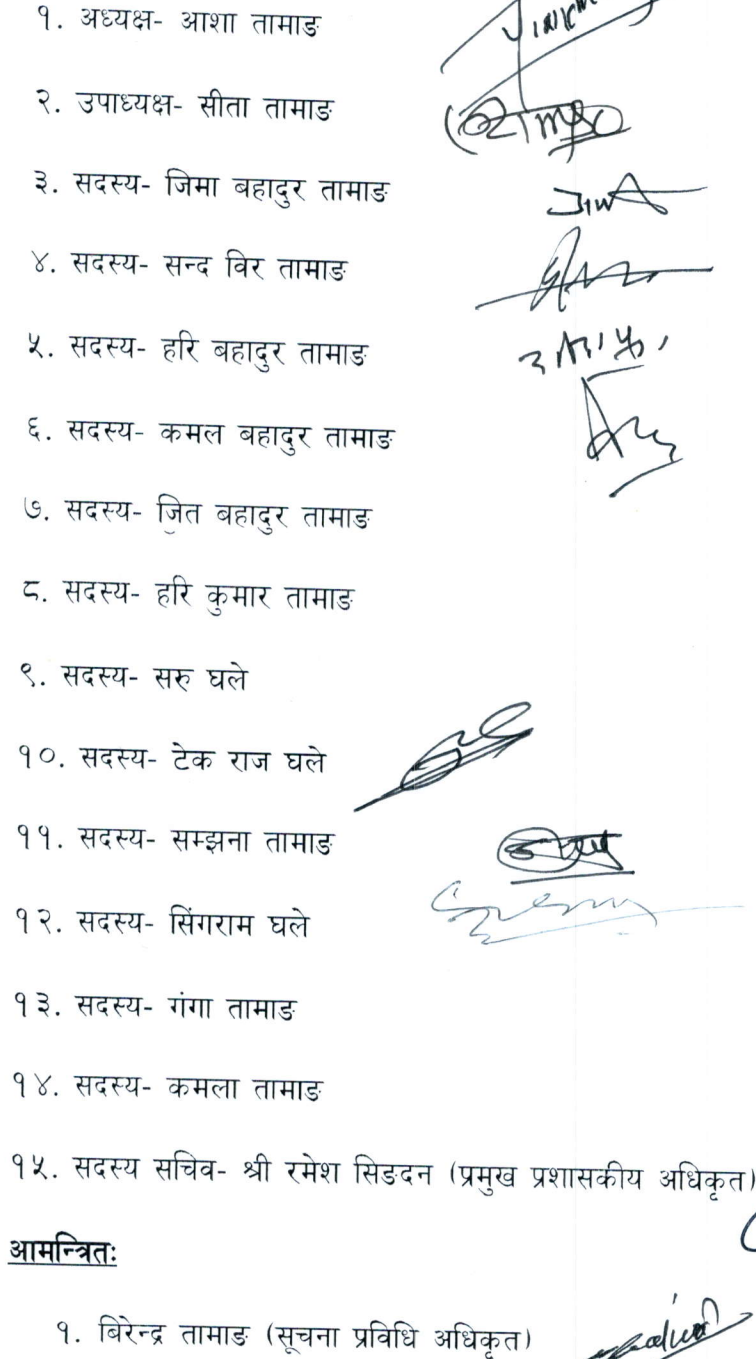 १. अध्यक्ष- आशा तामाङ
२. उपाध्यक्ष- सीता तामाङ
३. सदस्य- जिमा बहादुर तामाङ
४. सदस्य- सन्द विर तामाङ
५. सदस्य- हरि बहादुर तामाङ
६. सदस्य- कमल बहादुर तामाङ
७. सदस्य- जित बहादुर तामाङ
८. सदस्य- हरि कुमार तामाङ
९. सदस्य- सरु घले
१०. सदस्य- टेक राज घले
११. सदस्य- सम्झना तामाङ
१२. सदस्य- सिंगराम घले
१३. सदस्य- गंगा तामाङ
१४. सदस्य- कमला तामाङ
१५. सदस्य सचिव- श्री रमेश सिङदन (प्रमुख प्रशासकीय अधिकृत)
आमन्त्रितः
१. बिरेन्द्र तामाङ (सूचना प्रविधि अधिकृत)